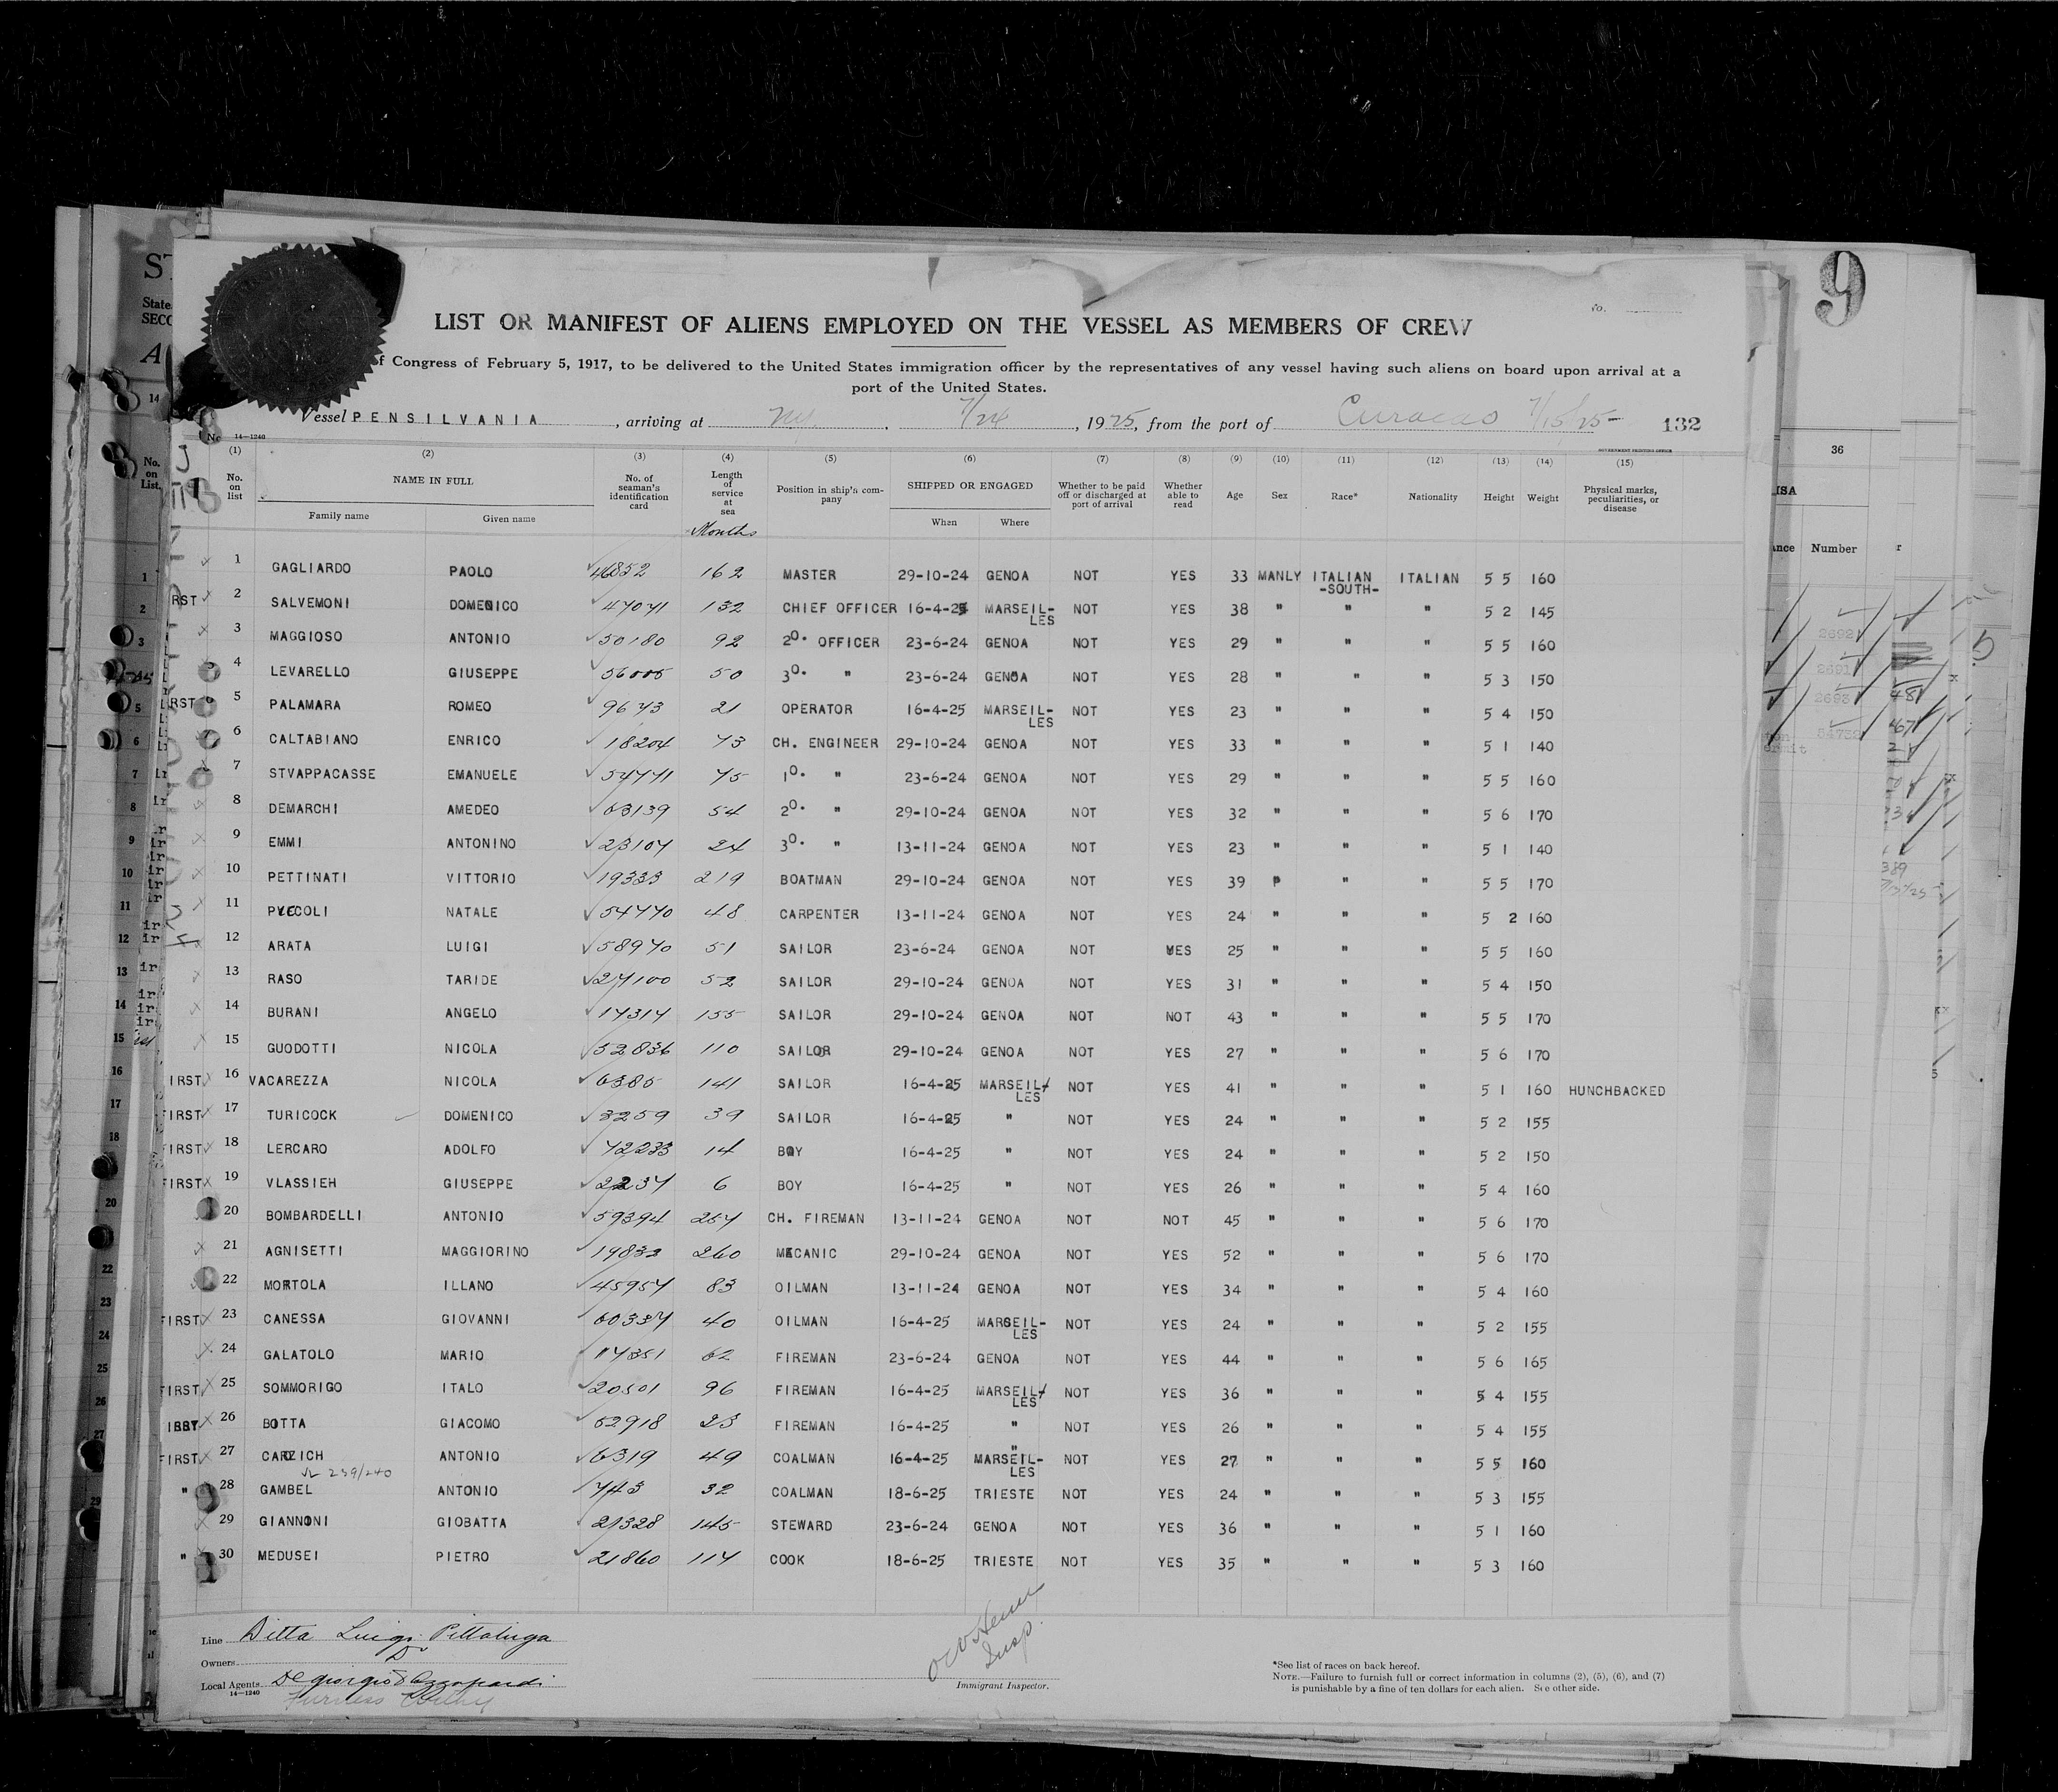 LIST OR MANIFEST OF ALIENS EMPLOYED ON THE VESSEL AS MEMBERS OF CREW
of Congress of February 5, 1917, to be delivered to the United States immigration officer by the representatives of any vessel having such aliens on board upon arrival at a
port of the United States.
Vessel PENSILVANIA, arriving at N.Y., 7/24, 1925, from the port of Curacao 7/15/25 132
14—1240 GOVERNMENT PRINTING OFFICE
(1) (2) (3) (4) (5) (6) (7) (8) (9) (10) (11) (12) (13) (14) (15)
No. on list NAME IN FULL Family name Given name No. of seaman's identification card Length of service at sea Months Position in ship's company SHIPPED OR ENGAGED When Where Whether to be paid off or discharged at port of arrival Whether able to read Age Sex Race* Nationality Height Weight Physical marks, peculiarities, or disease
1 GAGLIARDO PAOLO 46852 162 MASTER 29-10-24 GENOA NOT YES 33 MANLY ITALIAN -SOUTH- ITALIAN 5 5 160
RST 2 SALVEMONI DOMENICO 47071 132 CHIEF OFFICER 16-4-25 MARSEIL-LES NOT YES 38 " " " 5 2 145
3 MAGGIOSO ANTONIO 50180 92 2O. OFFICER 23-6-24 GENOA NOT YES 29 " " " 5 5 160
4 LEVARELLO GIUSEPPE 56005 50 3O. " 23-6-24 GENOA NOT YES 28 " " " 5 3 150
RST 5 PALAMARA ROMEO 9673 21 OPERATOR 16-4-25 MARSEIL-LES NOT YES 23 " " " 5 4 150
6 CALTABIANO ENRICO 18204 73 CH. ENGINEER 29-10-24 GENOA NOT YES 33 " " " 5 1 140
7 STVAPPACASSE EMANUELE 54771 75 1O. " 23-6-24 GENOA NOT YES 29 " " " 5 5 160
8 DEMARCHI AMEDEO 63139 54 2O. " 29-10-24 GENOA NOT YES 32 " " " 5 6 170
9 EMMI ANTONINO 23107 24 3O. " 13-11-24 GENOA NOT YES 23 " " " 5 1 140
10 PETTINATI VITTORIO 19333 219 BOATMAN 29-10-24 GENOA NOT YES 39 " " 5 5 170
11 NATALE 54770 48 CARPENTER 13-11-24 GENOA NOT YES 24 " " " 5 2 160
12 ARATA LUIGI 58970 51 SAILOR 23-6-24 GENOA NOT YES 25 " " " 5 5 160
13 RASO TARIDE 27100 52 SAILOR 29-10-24 GENOA NOT YES 31 " " " 5 4 150
14 BURANI ANGELO 17317 155 SAILOR 29-10-24 GENOA NOT NOT 43 " " " 5 5 170
15 GUODOTTI NICOLA 52836 110 SAILOR 29-10-24 GENOA NOT YES 27 " " " 5 6 170
IRST 16 VACAREZZA NICOLA 6385 141 SAILOR 16-4-25 MARSEIL-LES NOT YES 41 " " " 5 1 160 HUNCHBACKED
FIRST 17 TURICOCK DOMENICO 3259 39 SAILOR 16-4-25 " NOT YES 24 " " " 5 2 155
FIRST 18 LERCARO ADOLFO 72233 14 BOY 16-4-25 " NOT YES 24 " " " 5 2 150
FIRST 19 VLASSIEH GIUSEPPE 2237 6 BOY 16-4-25 " NOT YES 26 " " " 5 4 160
20 BOMBARDELLI ANTONIO 59394 257 CH. FIREMAN 13-11-24 GENOA NOT NOT 45 " " " 5 6 170
21 AGNISETTI MAGGIORINO 19832 260 MECANIC 29-10-24 GENOA NOT YES 52 " " " 5 6 170
22 MORTOLA ILLANO 45957 83 OILMAN 13-11-24 GENOA NOT YES 34 " " " 5 4 160
FIRST 23 CANESSA GIOVANNI 60337 40 OILMAN 16-4-25 MARSEIL-LES NOT YES 24 " " " 5 2 155
24 GALATOLO MARIO 117351 62 FIREMAN 23-6-24 GENOA NOT YES 44 " " " 5 6 165
FIRST 25 SOMMORIGO ITALO 20501 96 FIREMAN 16-4-25 MARSEIL-LES NOT YES 36 " " " 5 4 155
26 BOTTA GIACOMO 52918 23 FIREMAN 16-4-25 " NOT YES 26 " " " 5 4 155
FIRST 27 CARZICH ANTONIO 6319 49 COALMAN 16-4-25 " MARSEIL-LES NOT YES 27 " " " 5 5 160
239/240
" 28 GAMBEL ANTONIO 743 32 COALMAN 18-6-25 TRIESTE NOT YES 24 " " " 5 3 155
29 GIANNONI GIOBATTA 29328 145 STEWARD 23-6-24 GENOA NOT YES 36 " " " 5 1 160
" 30 MEDUSEI PIETRO 21860 117 COOK 18-6-25 TRIESTE NOT YES 35 " " " 5 3 160
Line Ditta Luigi Pittaluga
Owners
Local Agents Furness
14—1240
Insp.
Immigrant Inspector.
*See list of races on back hereof.
NOTE.—Failure to furnish full or correct information in columns (2), (5), (6), and (7)
is punishable by a fine of ten dollars for each alien. See other side.
9
36
Number